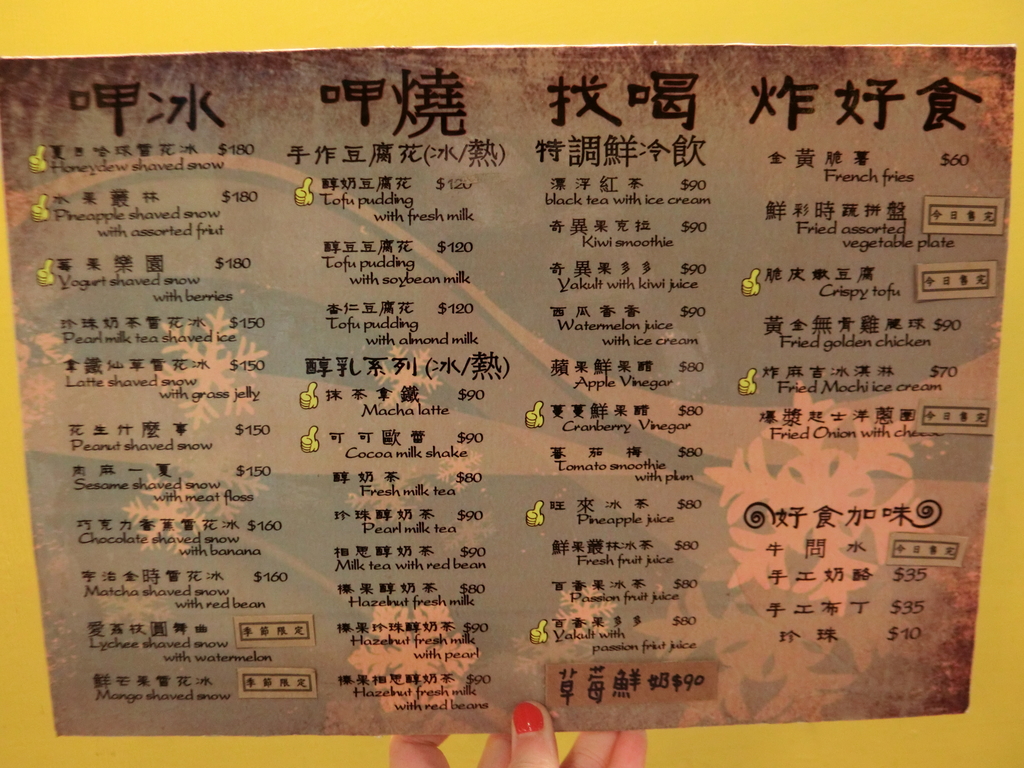 呷冰
夏日哈球雪花冰 $180
Honeydew shaved snow
水果叢林 $180
Pineapple shaved snow
with assorted friut
莓果樂園 $180
Yogurt shaved snow
with berries
珍珠奶茶雪花冰 $150
Pearl milk tea shaved ice
拿鐵仙草雪花冰 $150
Latte shaved snow
with grass jelly
花生什麼事 $150
Peanut shaved snow
肉麻一夏 $150
Sesame shaved snow
with meat floss
巧克力香蕉雪花冰 $160
Chocolate shaved snow
with banana
宇治金時雪花冰 $160
Matcha shaved snow
with red bean
愛荔枝圓舞曲 季節限定
Lychee shaved snow
with watermelon
鮮芒果雪花冰 季節限定
Mango shaved snow
呷燒
手作豆腐花(冰/熱)
醇奶豆腐花 $120
Tofu pudding
with fresh milk
醇豆豆腐花 $120
Tofu pudding
with soybean milk
杏仁豆腐花 $120
Tofu pudding
with almond milk
醇乳系列(冰/熱)
抹茶拿鐵 $90
Macha latte
可可歐蕾 $90
Cocoa milk shake
醇奶茶 $80
Fresh milk tea
珍珠醇奶茶 $90
Pearl milk tea
相思醇奶茶 $90
Milk tea with red bean
榛果醇奶茶 $80
Hazelnut fresh milk
榛果珍珠醇奶茶 $90
Hazelnut fresh milk
with pearl
榛果相思醇奶茶 $90
Hazelnut fresh milk
with red beans
找喝
特調鮮冷飲
漂浮紅茶 $90
black tea with ice cream
奇異果克拉 $90
Kiwi smoothie
奇異果多多 $90
Yakult with kiwi juice
西瓜香香 $90
Watermelon juice
with ice cream
蘋果鮮果醋 $80
Apple Vinegar
蔓蔓鮮果醋 $80
Cranberry Vinegar
蕃茄梅 $80
Tomato smoothie
with plum
旺來冰茶 $80
Pineapple juice
鮮果叢林冰茶 $80
Fresh fruit juice
百香果冰茶 $80
Passion fruit juice
百香果多多 $80
Yakult with
passion friut juice
草莓鮮奶$90
炸好食
金黃脆薯 $60
French fries
鮮彩時蔬拼盤 今日售完
Fried assorted
vegetable plate
脆皮嫩豆腐 今日售完
Crispy tofu
黃金無骨雞腿球 $90
Fried golden chicken
炸麻吉冰淇淋 $70
Fried Mochi ice cream
爆漿起士洋蔥圈 今日售完
Fried Onion with cheese
好食加味
牛問水 今日售完
手工奶酪 $35
手工布丁 $35
珍珠 $10